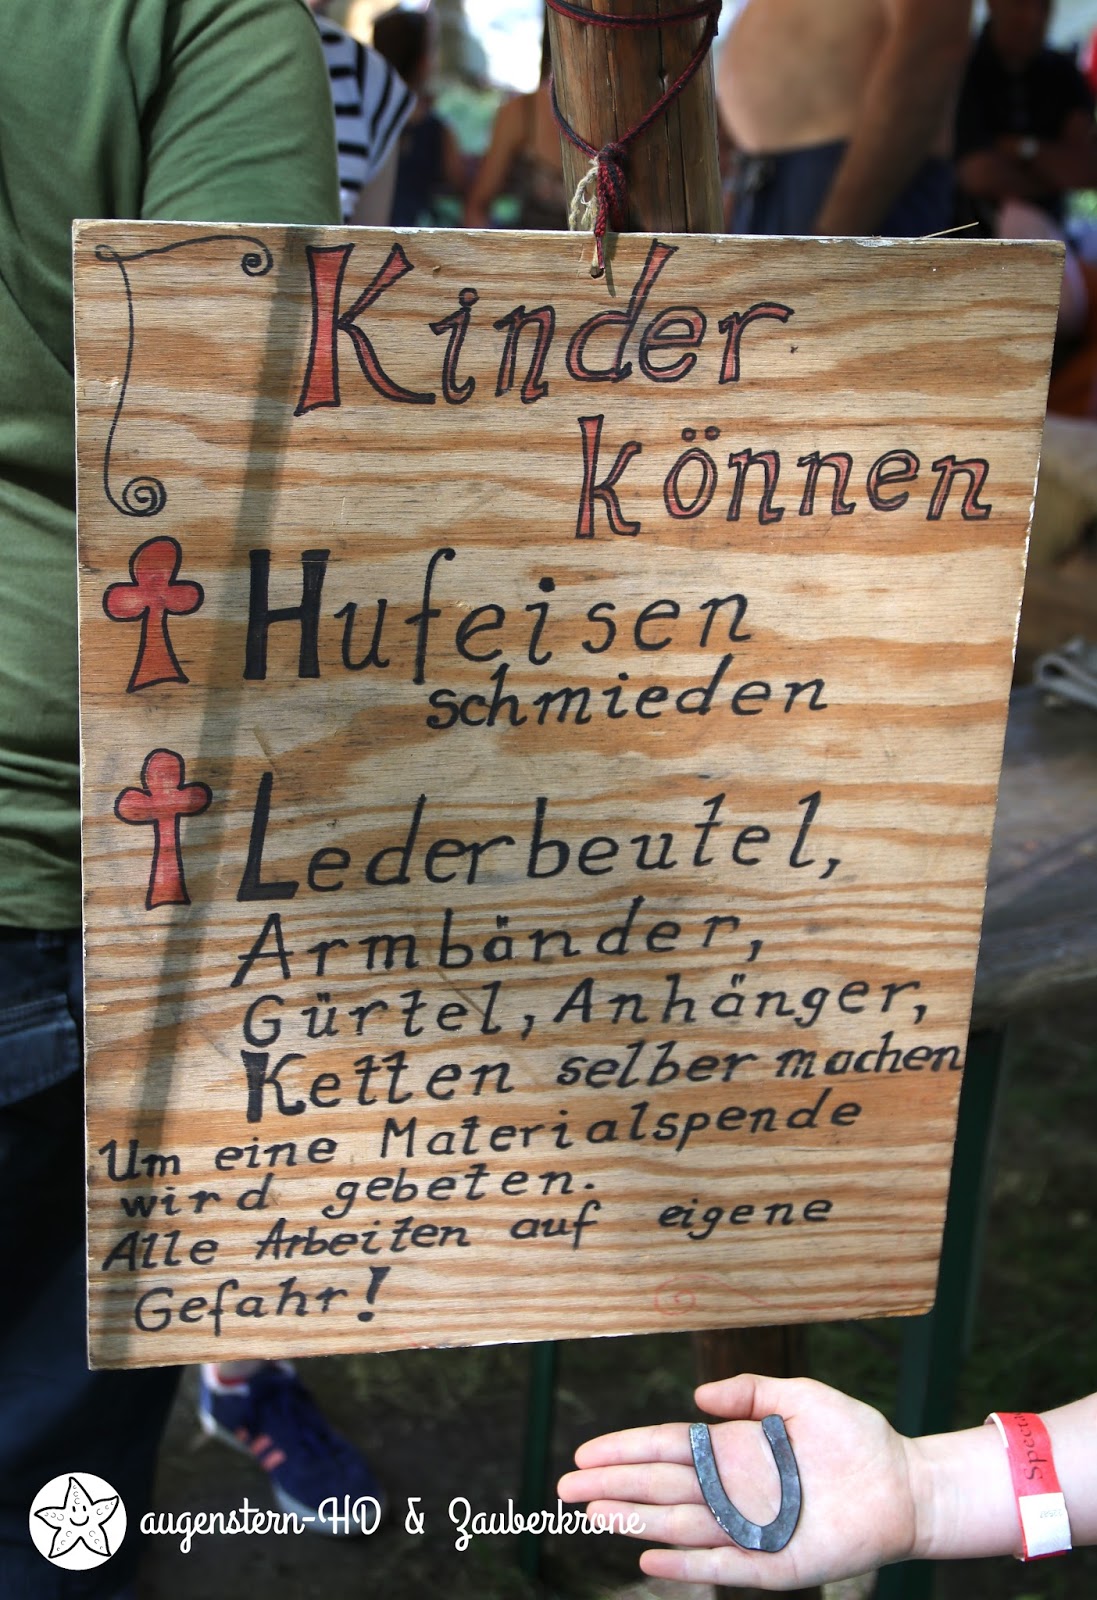 Kinder
können
Hufeisen
schmieden
Lederbeutel,
Armbänder,
Gürtel, Anhänger,
Ketten selber machen
Um eine Materialspende
wird gebeten.
Alle Arbeiten auf eigene
Gefahr!
augenstern-HD & Zauberkrone